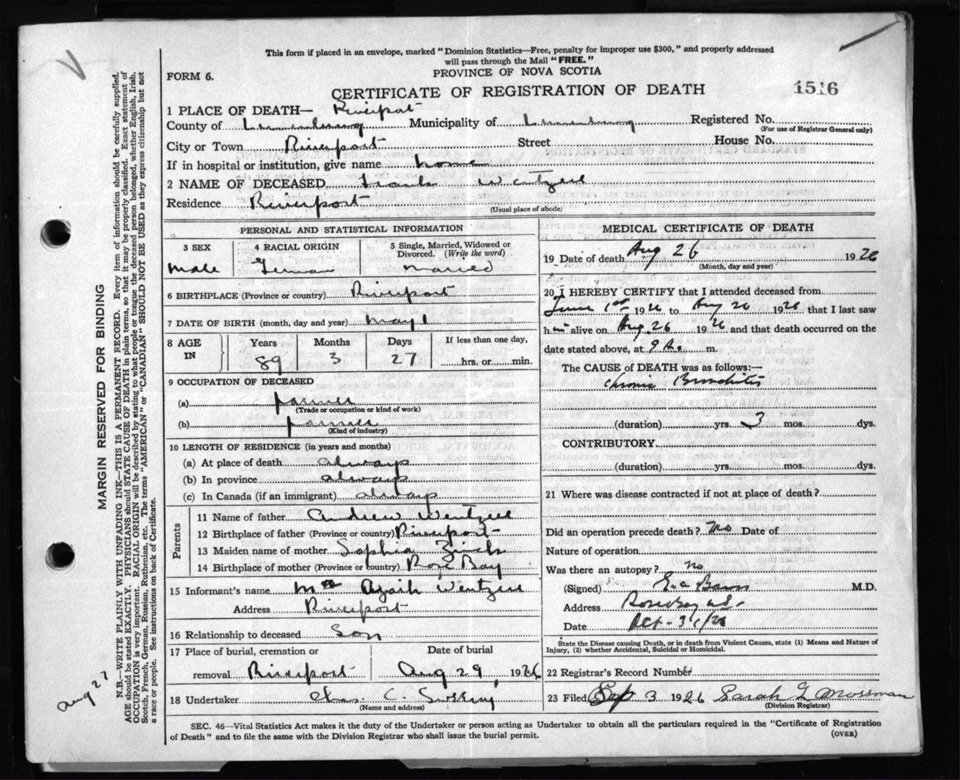 This form if placed in an envelope, marked "Dominion Statistics—Free, penalty for improper use $300," and properly addressed
will pass through the Mail "FREE."
FORM 6.
PROVINCE OF NOVA SCOTIA
CERTIFICATE OF REGISTRATION OF DEATH
1516
1 PLACE OF DEATH— Riverport
County of Lunenburg Municipality of Lunenburg Registered No.
(For use of Registrar General only)
City or Town Riverport Street House No.
If in hospital or institution, give name home
2 NAME OF DECEASED Wentzell
Residence Riverport
(Usual place of abode)
PERSONAL AND STATISTICAL INFORMATION
3 SEX 4 RACIAL ORIGIN 5 Single, Married, Widowed or Divorced. (Write the word)
Male German Married
6 BIRTHPLACE (Province or country) Riverport
7 DATE OF BIRTH (month, day and year) May 1
8 AGE IN Years Months Days If less than one day,
89 3 27 hrs. or min.
9 OCCUPATION OF DECEASED
(a) farmer
(Trade or occupation or kind of work)
(b) farmer
(Kind of industry)
10 LENGTH OF RESIDENCE (in years and months)
(a) At place of death always
(b) In province always
(c) In Canada (if an immigrant) always
Parents
11 Name of father Andrew Wentzell
12 Birthplace of father (Province or country) Riverport
13 Maiden name of mother Sophia
14 Birthplace of mother (Province or country) Rose Bay
15 Informant's name Wentzell
Address Riverport
16 Relationship to deceased Son
17 Place of burial, cremation or removal Date of burial
Riverport Aug 29, 1926
18 Undertaker Chas. C.
(Name and address)
MEDICAL CERTIFICATE OF DEATH
19 Date of death Aug 26 1926
(Month, day and year)
20 I HEREBY CERTIFY that I attended deceased from
June 1st 1926 to Aug 26 1926 that I last saw
him alive on Aug. 26 1926 and that death occurred on the
date stated above, at 9 a. m.
The CAUSE OF DEATH was as follows:—
Chronic Bronchitis
(duration) yrs. 3 mos. dys.
CONTRIBUTORY
(duration) yrs. mos. dys.
21 Where was disease contracted if not at place of death?
Did an operation precede death? No Date of
Nature of operation
Was there an autopsy? No
(Signed) M.D.
Address Rose Bay
Date
State the Disease causing Death, or in death from Violent Causes, state (1) Means and Nature of
Injury, (2) whether Accidental, Suicidal or Homicidal.
22 Registrar's Record Number
23 Filed Sep 3 1926 Sarah G Mossman
(Division Registrar)
SEC. 46—Vital Statistics Act makes it the duty of the Undertaker or person acting as Undertaker to obtain all the particulars required in the "Certificate of Registration
of Death" and to file the same with the Division Registrar who shall issue the burial permit.
(OVER)
MARGIN RESERVED FOR BINDING
N.B.—WRITE PLAINLY WITH UNFADING INK—THIS IS A PERMANENT RECORD. Every item of information should be carefully supplied.
AGE should be stated EXACTLY. PHYSICIANS should STATE CAUSE OF DEATH in plain terms, so that it may be properly classified. Exact statement of
OCCUPATION is very important. RACIAL ORIGIN will be described by stating to what people or tongue the deceased person belonged, whether English, Irish,
Scotch, French, German, Russian, Ruthenian, etc. The terms "AMERICAN" or "CANADIAN" SHOULD NOT BE USED as they express citizenship but not
a race or people. See instructions on back of Certificate.
Aug 27